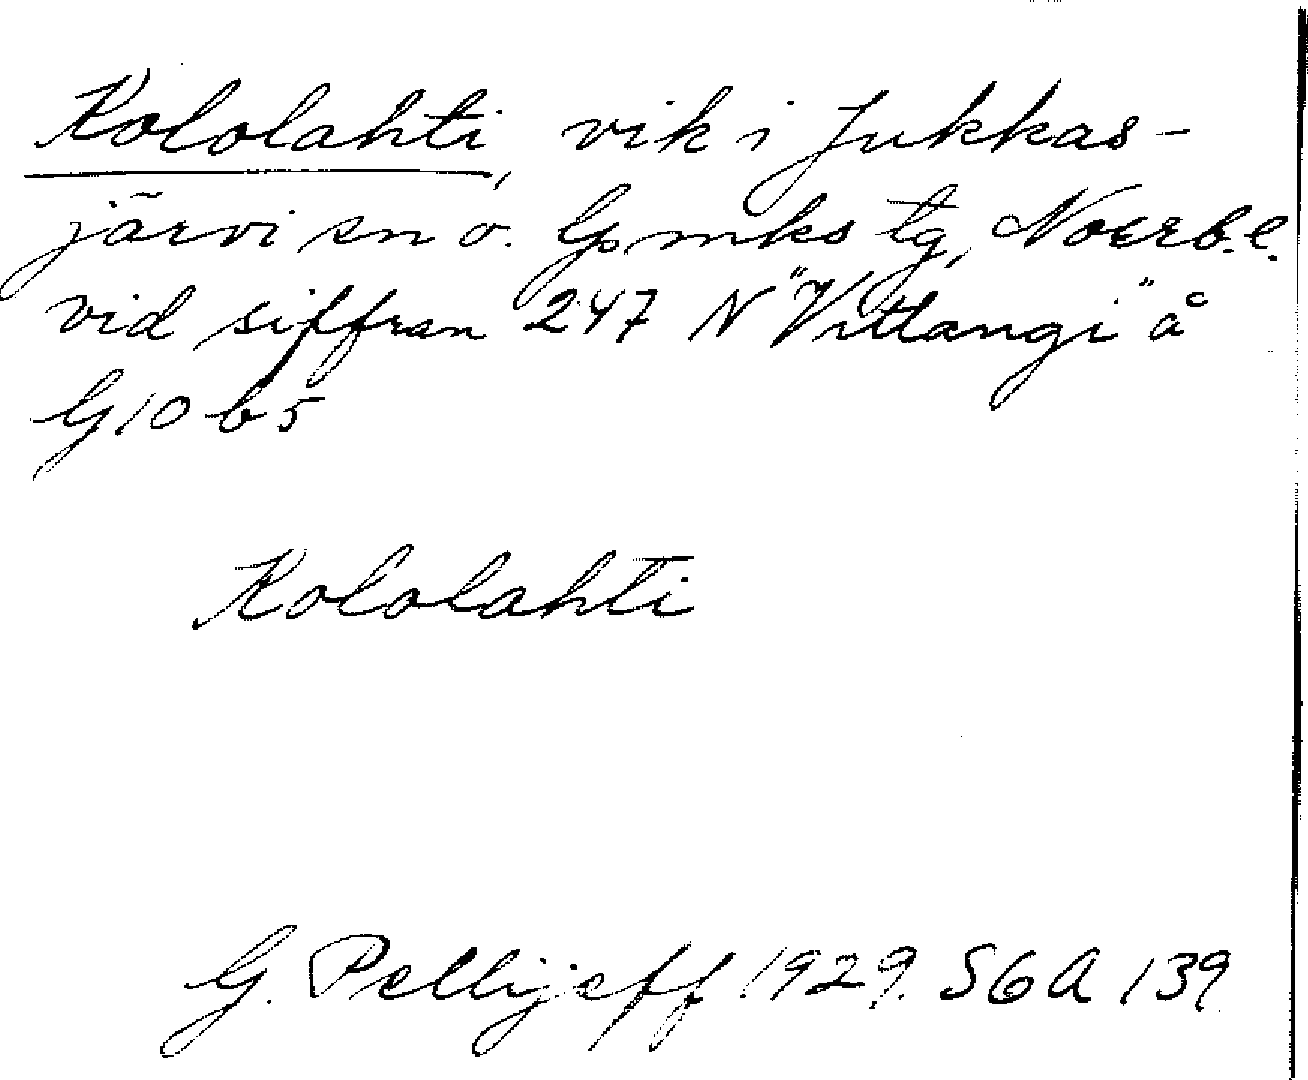 Kololahti, vik i Jukkas-
järvi sn o. Gmks tg, Norrb. l.
vid siffran 247 N "Vittangi" å
G10 b5
Kololahti
G. Pellijeff 1929. SGA 139